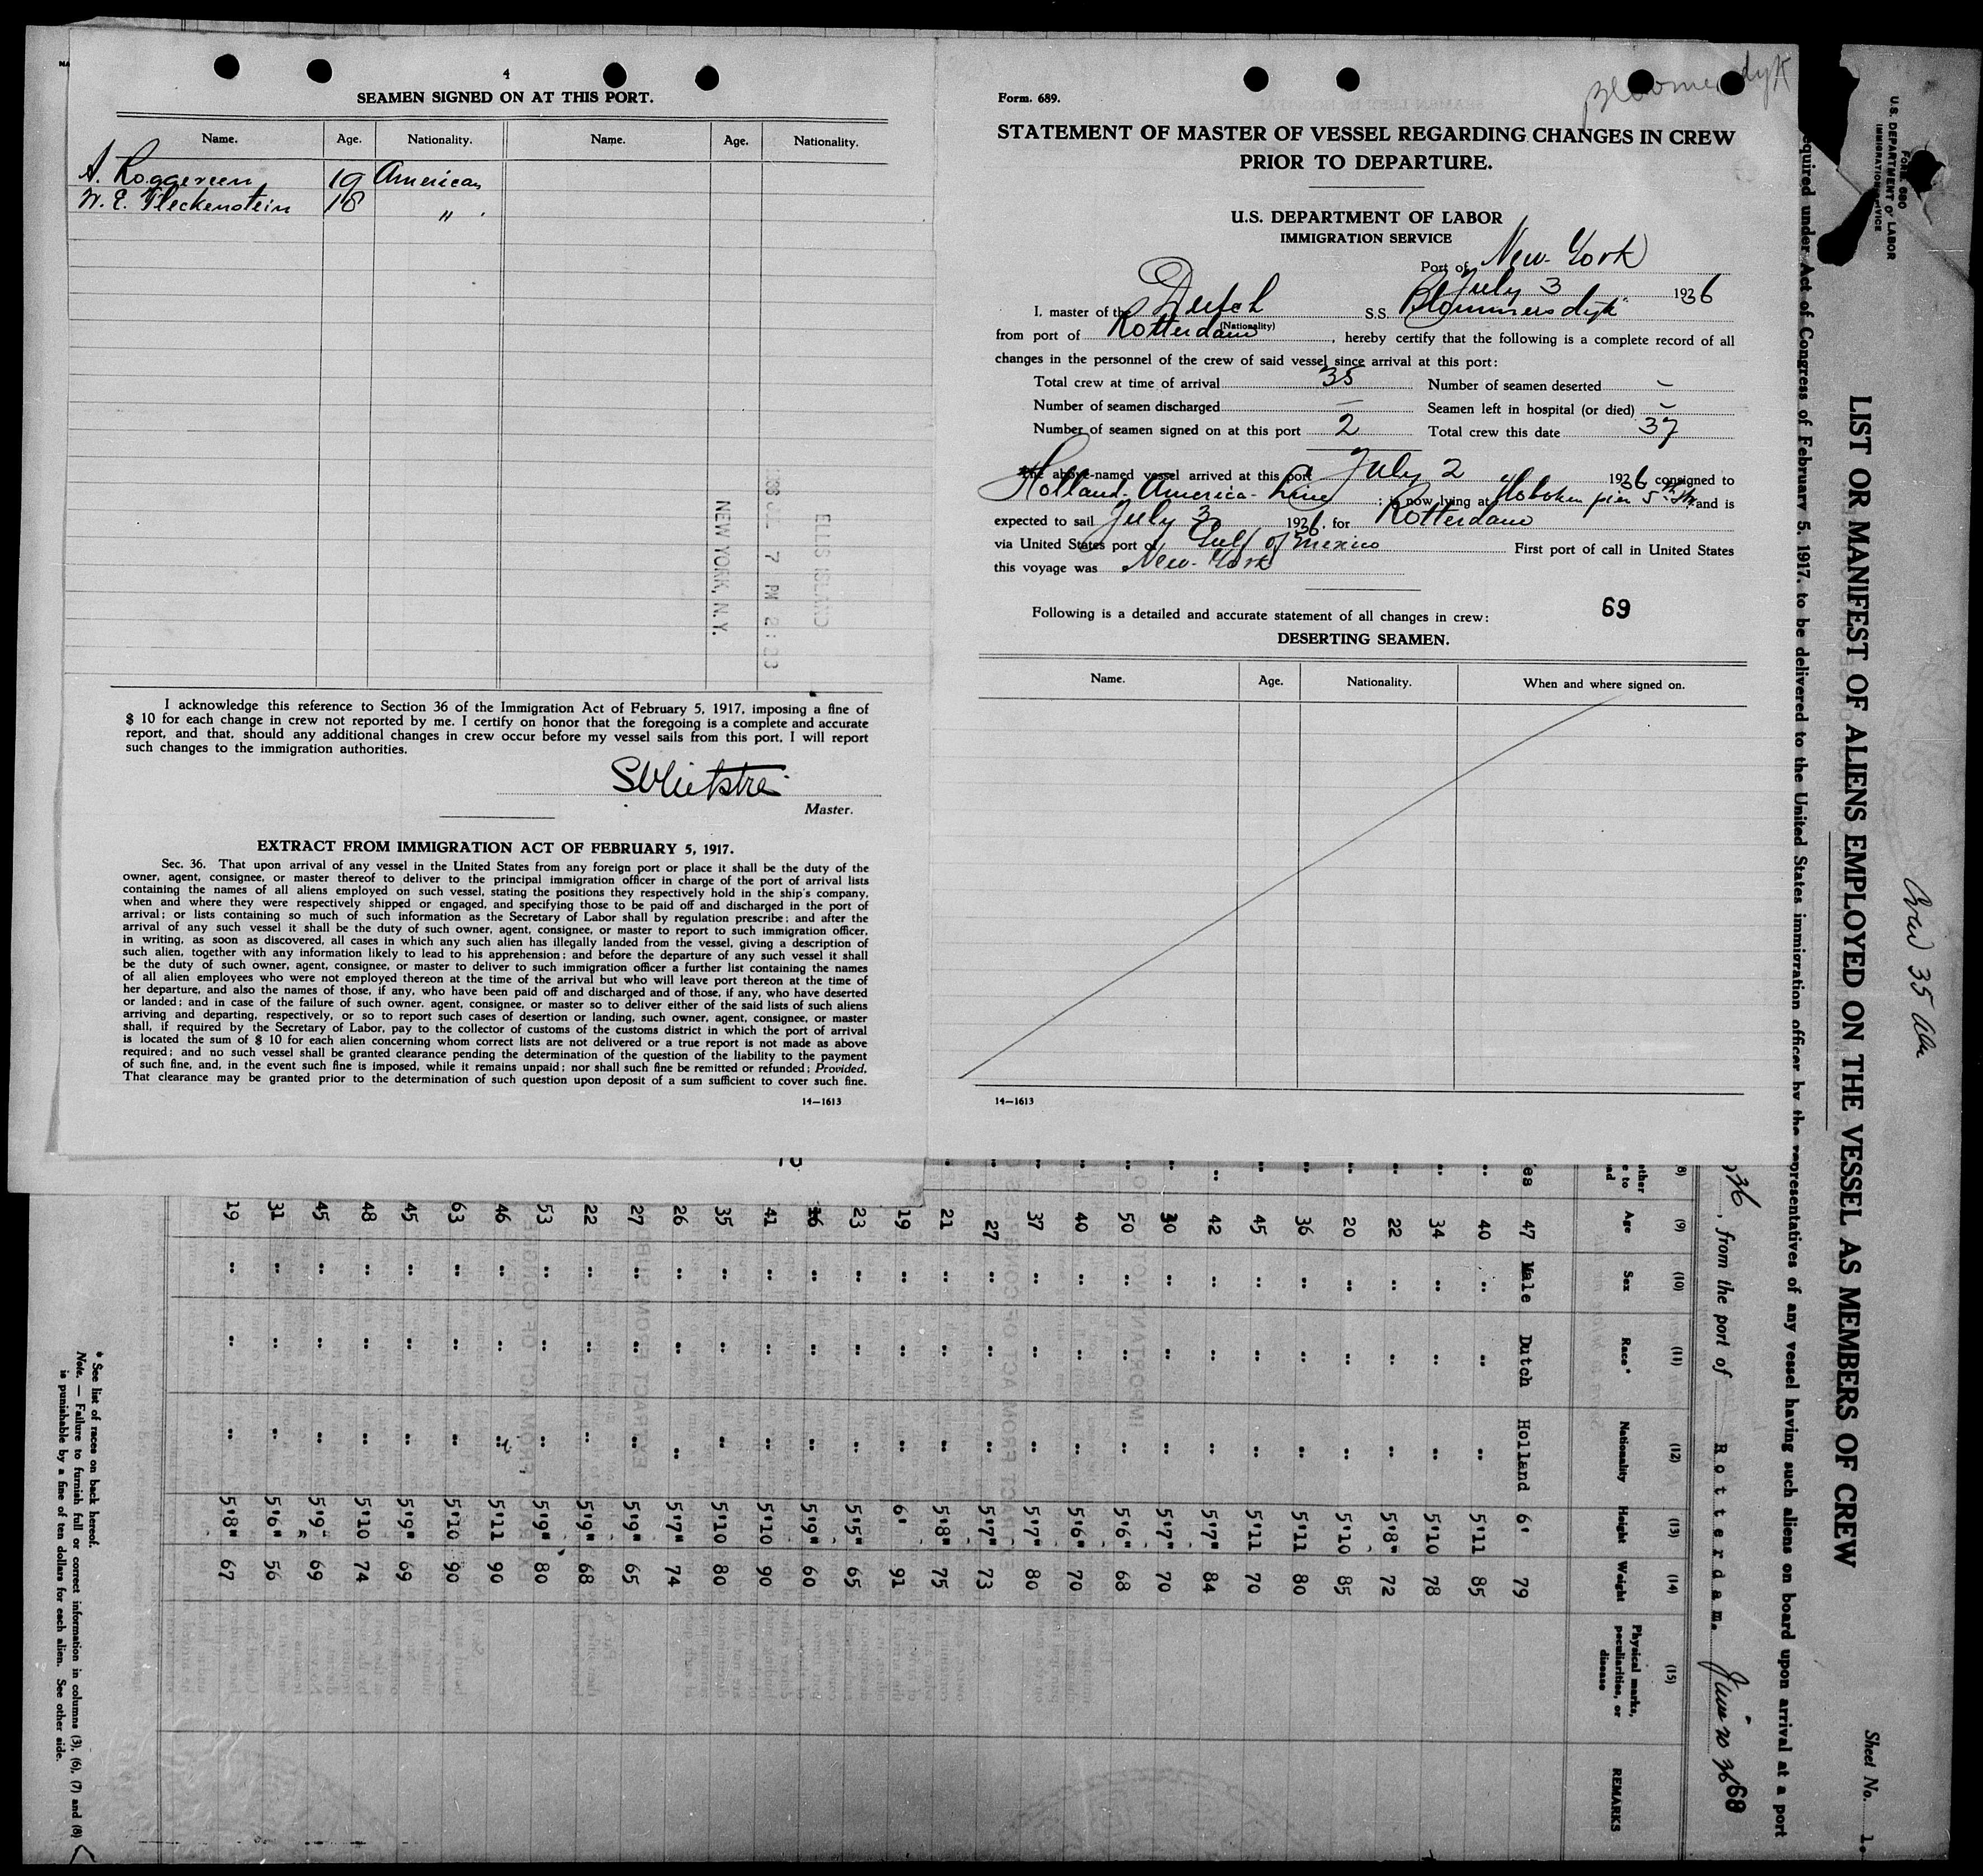 4
SEAMEN SIGNED ON AT THIS PORT.
Name. Age. Nationality. Name. Age. Nationality.
A. Roggeveen 19 American
W. E. Fleckenstein 18 " .
ELLIS ISLAND
7 PM 2:23
NEW YORK, N.Y.
I acknowledge this reference to Section 36 of the Immigration Act of February 5, 1917, imposing a fine of
$ 10 for each change in crew not reported by me. I certify on honor that the foregoing is a complete and accurate
report, and that, should any additional changes in crew occur before my vessel sails from this port, I will report
such changes to the immigration authorities.
Master.
EXTRACT FROM IMMIGRATION ACT OF FEBRUARY 5, 1917.
Sec. 36. That upon arrival of any vessel in the United States from any foreign port or place it shall be the duty of the
owner, agent, consignee, or master thereof to deliver to the principal immigration officer in charge of the port of arrival lists
containing the names of all aliens employed on such vessel, stating the positions they respectively hold in the ship's company,
when and where they were respectively shipped or engaged, and specifying those to be paid off and discharged in the port of
arrival; or lists containing so much of such information as the Secretary of Labor shall by regulation prescribe; and after the
arrival of any such vessel it shall be the duty of such owner, agent, consignee, or master to report to such immigration officer,
in writing, as soon as discovered, all cases in which any such alien has illegally landed from the vessel, giving a description of
such alien, together with any information likely to lead to his apprehension; and before the departure of any such vessel it shall
be the duty of such owner, agent, consignee, or master to deliver to such immigration officer a further list containing the names
of all alien employees who were not employed thereon at the time of the arrival but who will leave port thereon at the time of
her departure, and also the names of those, if any, who have been paid off and discharged and of those, if any, who have deserted
or landed; and in case of the failure of such owner, agent, consignee, or master so to deliver either of the said lists of such aliens
arriving and departing, respectively, or so to report such cases of desertion or landing, such owner, agent, consignee, or master
shall, if required by the Secretary of Labor, pay to the collector of customs of the customs district in which the port of arrival
is located the sum of $ 10 for each alien concerning whom correct lists are not delivered or a true report is not made as above
required; and no such vessel shall be granted clearance pending the determination of the question of the liability to the payment
of such fine, and, in the event such fine is imposed, while it remains unpaid; nor shall such fine be remitted or refunded; Provided,
That clearance may be granted prior to the determination of such question upon deposit of a sum sufficient to cover such fine.
14—1613
Form. 689.
STATEMENT OF MASTER OF VESSEL REGARDING CHANGES IN CREW
PRIOR TO DEPARTURE.
U.S. DEPARTMENT OF LABOR
IMMIGRATION SERVICE
Port of New-York
July 3 1936
I, master of the Dutch S.S. Blommersdijk
(Nationality)
from port of Rotterdam, hereby certify that the following is a complete record of all
changes in the personnel of the crew of said vessel since arrival at this port:
Total crew at time of arrival 35 Number of seamen deserted –
Number of seamen discharged – Seamen left in hospital (or died) –
Number of seamen signed on at this port 2 Total crew this date 37
The above-named vessel arrived at this port July 2 1936 consigned to
Holland-America-Line; is now lying at Hoboken pier 5th St. and is
expected to sail July 3 1936, for Rotterdam
via United States port of Gulf of Mexico First port of call in United States
this voyage was New-York
Following is a detailed and accurate statement of all changes in crew: 69
DESERTING SEAMEN.
Name. Age. Nationality. When and where signed on.
14—1613
Form 680
U.S. DEPARTMENT OF LABOR
IMMIGRATION SERVICE
Crew 35
LIST OR MANIFEST OF ALIENS EMPLOYED ON THE VESSEL AS MEMBERS OF CREW
Sheet No. 1.
required under Act of Congress of February 5, 1917, to be delivered to the United States immigration officer by the representatives of any vessel having such aliens on board upon arrival at a port
936, from the port of Rotterdam. June 20 36 68
(8) (9) (10) (11) (12) (13) (14) (15)
Age Sex Race* Nationality Height Weight Physical marks, peculiarities, or disease REMARKS
es 47 Male Dutch Holland 6' 79
" 40 " " " 5'11 85
" 34 " " " 5'10 78
" 22 " " " 5'8" 72
" 20 " " " 5'10 85
" 36 " " " 5'11 80
" 45 " " " 5'11 70
" 42 " " " 5'7" 84
" 30 " " " 5'7" 70
" 50 " " " 5'6" 68
" 40 " " " 5'6" 70
" 37 " " " 5'7" 80
" 27 " " " 5'7" 73
" 21 " " " 5'8" 75
19 " " " 6' 91
23 " " " 5'5" 65
36 " " " 5'9" 60
41 " " " 5'10 90
35 " " " 5'10 80
26 " " " 5'7" 74
27 " " " 5'9" 65
22 " " " 5'9" 68
53 " " " 5'9" 80
46 " " " 5'11 90
63 " " " 5'10 90
45 " " " 5'9" 69
48 " " " 5'10 74
45 " " " 5'9" 69
31 " " " 5'6" 56
19 " " " 5'8" 67
* See list of races on back hereof.
Note. — Failure to furnish full or correct information in columns (3), (6), (7) and (8)
is punishable by a fine of ten dollars for each alien. See other side.